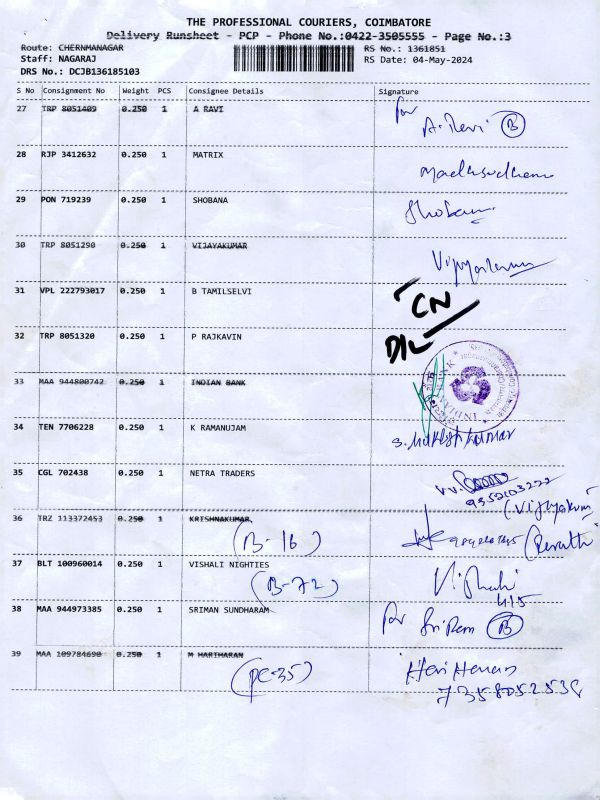 THE PROFESSIONAL COURIERS, COIMBATORE
Delivery Runsheet - PCP - Phone No.:0422-3505555 - Page No.:3
Route: CHERNMANAGAR RS No.: 1361851
Staff: NAGARAJ RS Date: 04-May-2024
DRS No.: DCJB136185103
S No Consignment No Weight PCS Consignee Details Signature
27 TRP 8051409 0.250 1 A RAVI for
A. Ravi B
28 RJP 3412632 0.250 1 MATRIX
29 PON 719239 0.250 1 SHOBANA Shobana
30 TRP 8051290 0.250 1 VIJAYAKUMAR
Vijayakumar
31 VPL 222793017 0.250 1 B TAMILSELVI
CN
32 TRP 8051320 0.250 1 P RAJKAVIN D/L
33 MAA 944800742 0.250 1 INDIAN BANK INDIAN BANK
34 TEN 7706228 0.250 1 K RAMANUJAM
35 CGL 702438 0.250 1 NETRA TRADERS
(Vijayakumar
36 TRZ 113372453 0.250 1 KRISHNAKUMAR
(B-16) (Revathi)
37 BLT 100960014 0.250 1 VISHALI NIGHTIES
(B-72) Vishali
415
38 MAA 944973385 0.250 1 SRIMAN SUNDHARAM for Sri Ram B
39 MAA 109784690 0.250 1 M HARIHARAN
(PC-35) Hari Haran
7358052538